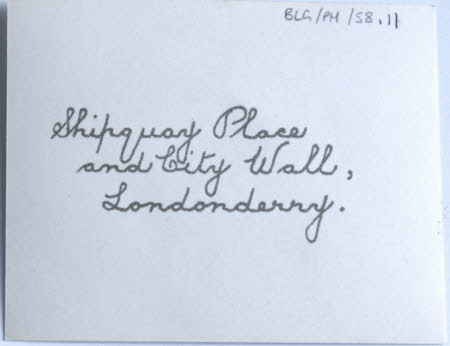 BLG/PM/58.11
Shipquay Place
and City Wall,
Londonderry.